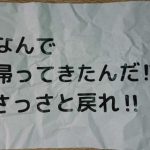 なんで
帰ってきたんだ!!
さっさと戻れ!!